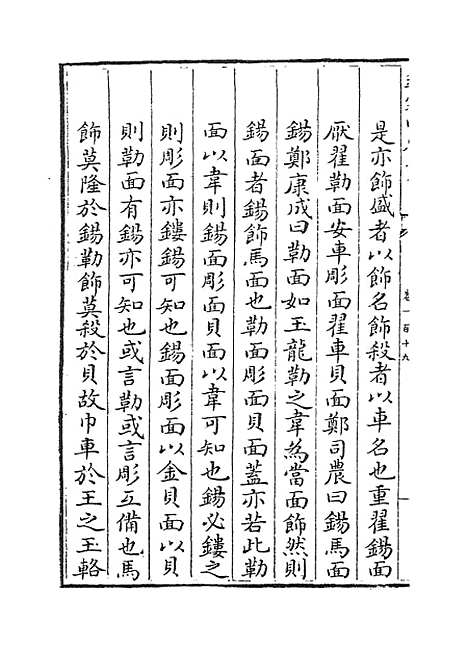 是亦飾盛者以飾名飾殺者以車名也重翟鍚面
厭翟勒面安車彫面翟車貝面鄭司農曰鍚馬面
鍚鄭康成曰勒面如玉龍勒之韋為當面飾然則
鍚面者鍚飾馬面也勒面彫面貝面蓋亦若此勒
面以韋則鍚面彫面貝面以韋可知也鍚必鏤之
則彫面亦鏤鍚可知也鍚面彫面以金貝面以貝
則勒面有鍚亦可知也或言勒或言彫互備也馬
飾莫隆於鍚勒飾莫殺於貝故巾車於王之玉輅